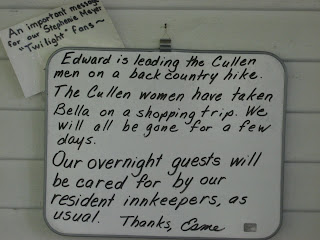 An important message
for our Stephanie Meyer
"Twilight" fans~
Edward is leading the Cullen
men on a back country hike.
The Cullen women have taken
Bella on a shopping trip. We
will all be gone for a few
days.
Our overnight guests will
be cared for by our
resident innkeepers, as
usual. Thanks, Esme